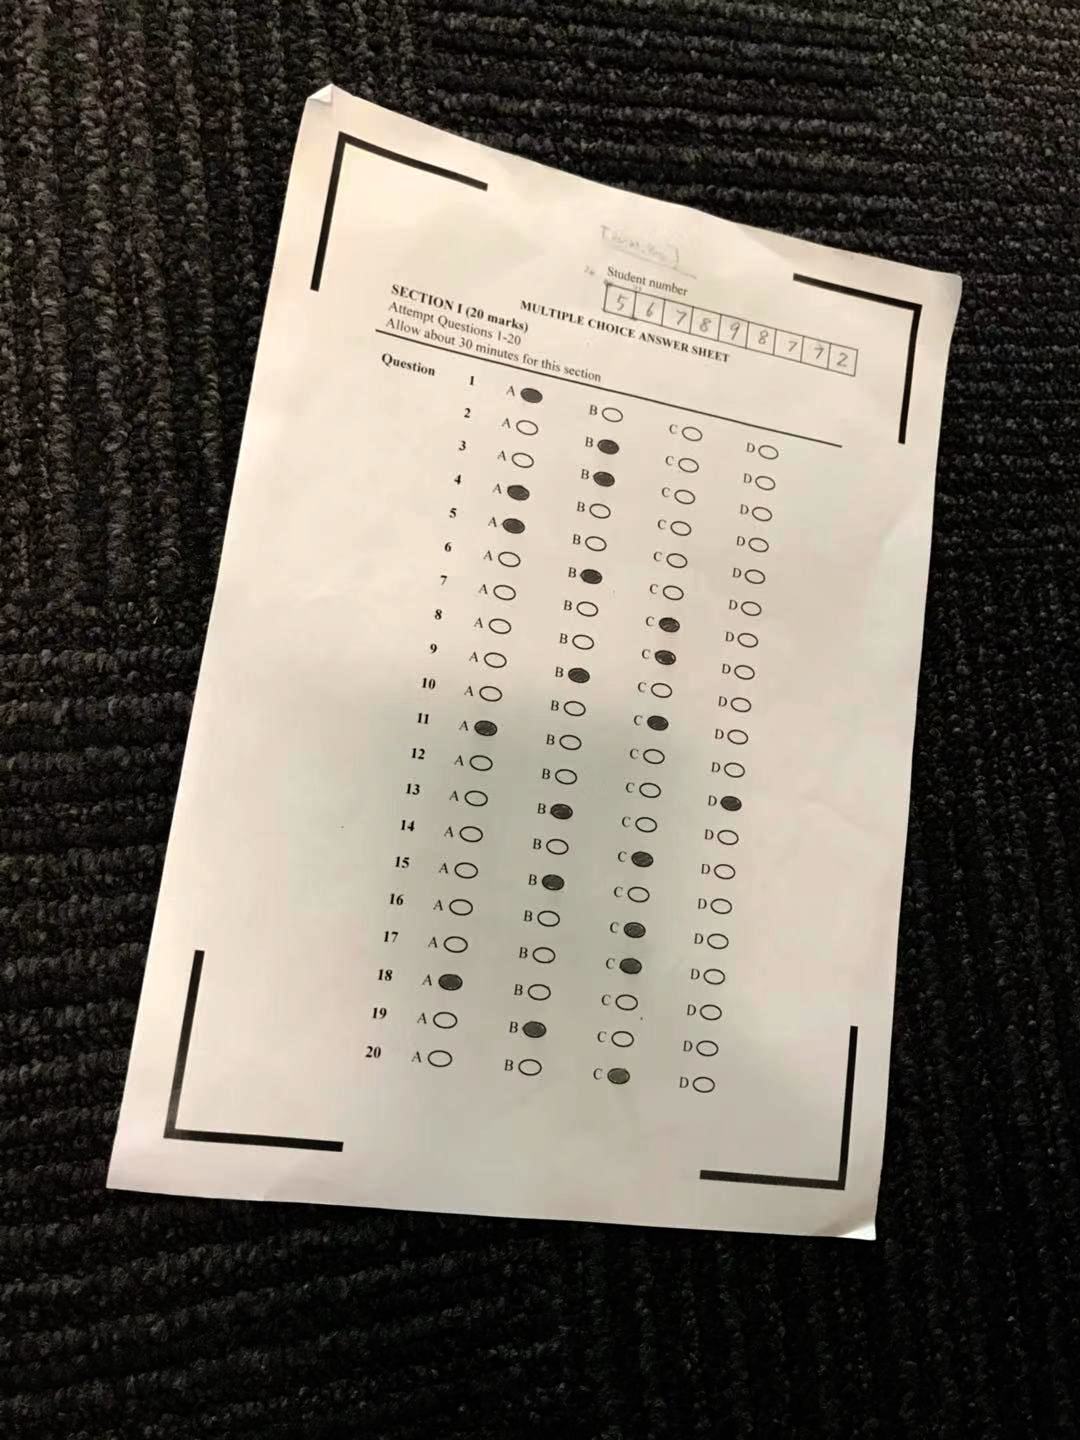 Student number
5 6 7 8 9 8 7 7 2
MULTIPLE CHOICE ANSWER SHEET
SECTION I (20 marks)
Attempt Questions 1-20
Allow about 30 minutes for this section
Question 1 A B C D
2 A B C D
3 A B C D
4 A B C D
5 A B C D
6 A B C D
7 A B C D
8 A B C D
9 A B C D
10 A B C D
11 A B C D
12 A B C D
13 A B C D
14 A B C D
15 A B C D
16 A B C D
17 A B C D
18 A B C D
19 A B C D
20 A B C D